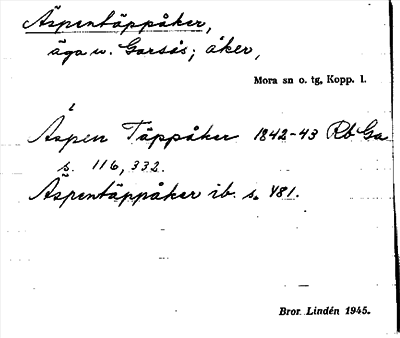 Äspentäppåker,
äga u. Garsås; åker,
Mora sn o. tg, Kopp. l.
i Äspen Täppåker 1842-43 Rb Ga
s. 116, 332.
Äspentäppåker ib. s. 481.
Bror Lindén 1945.